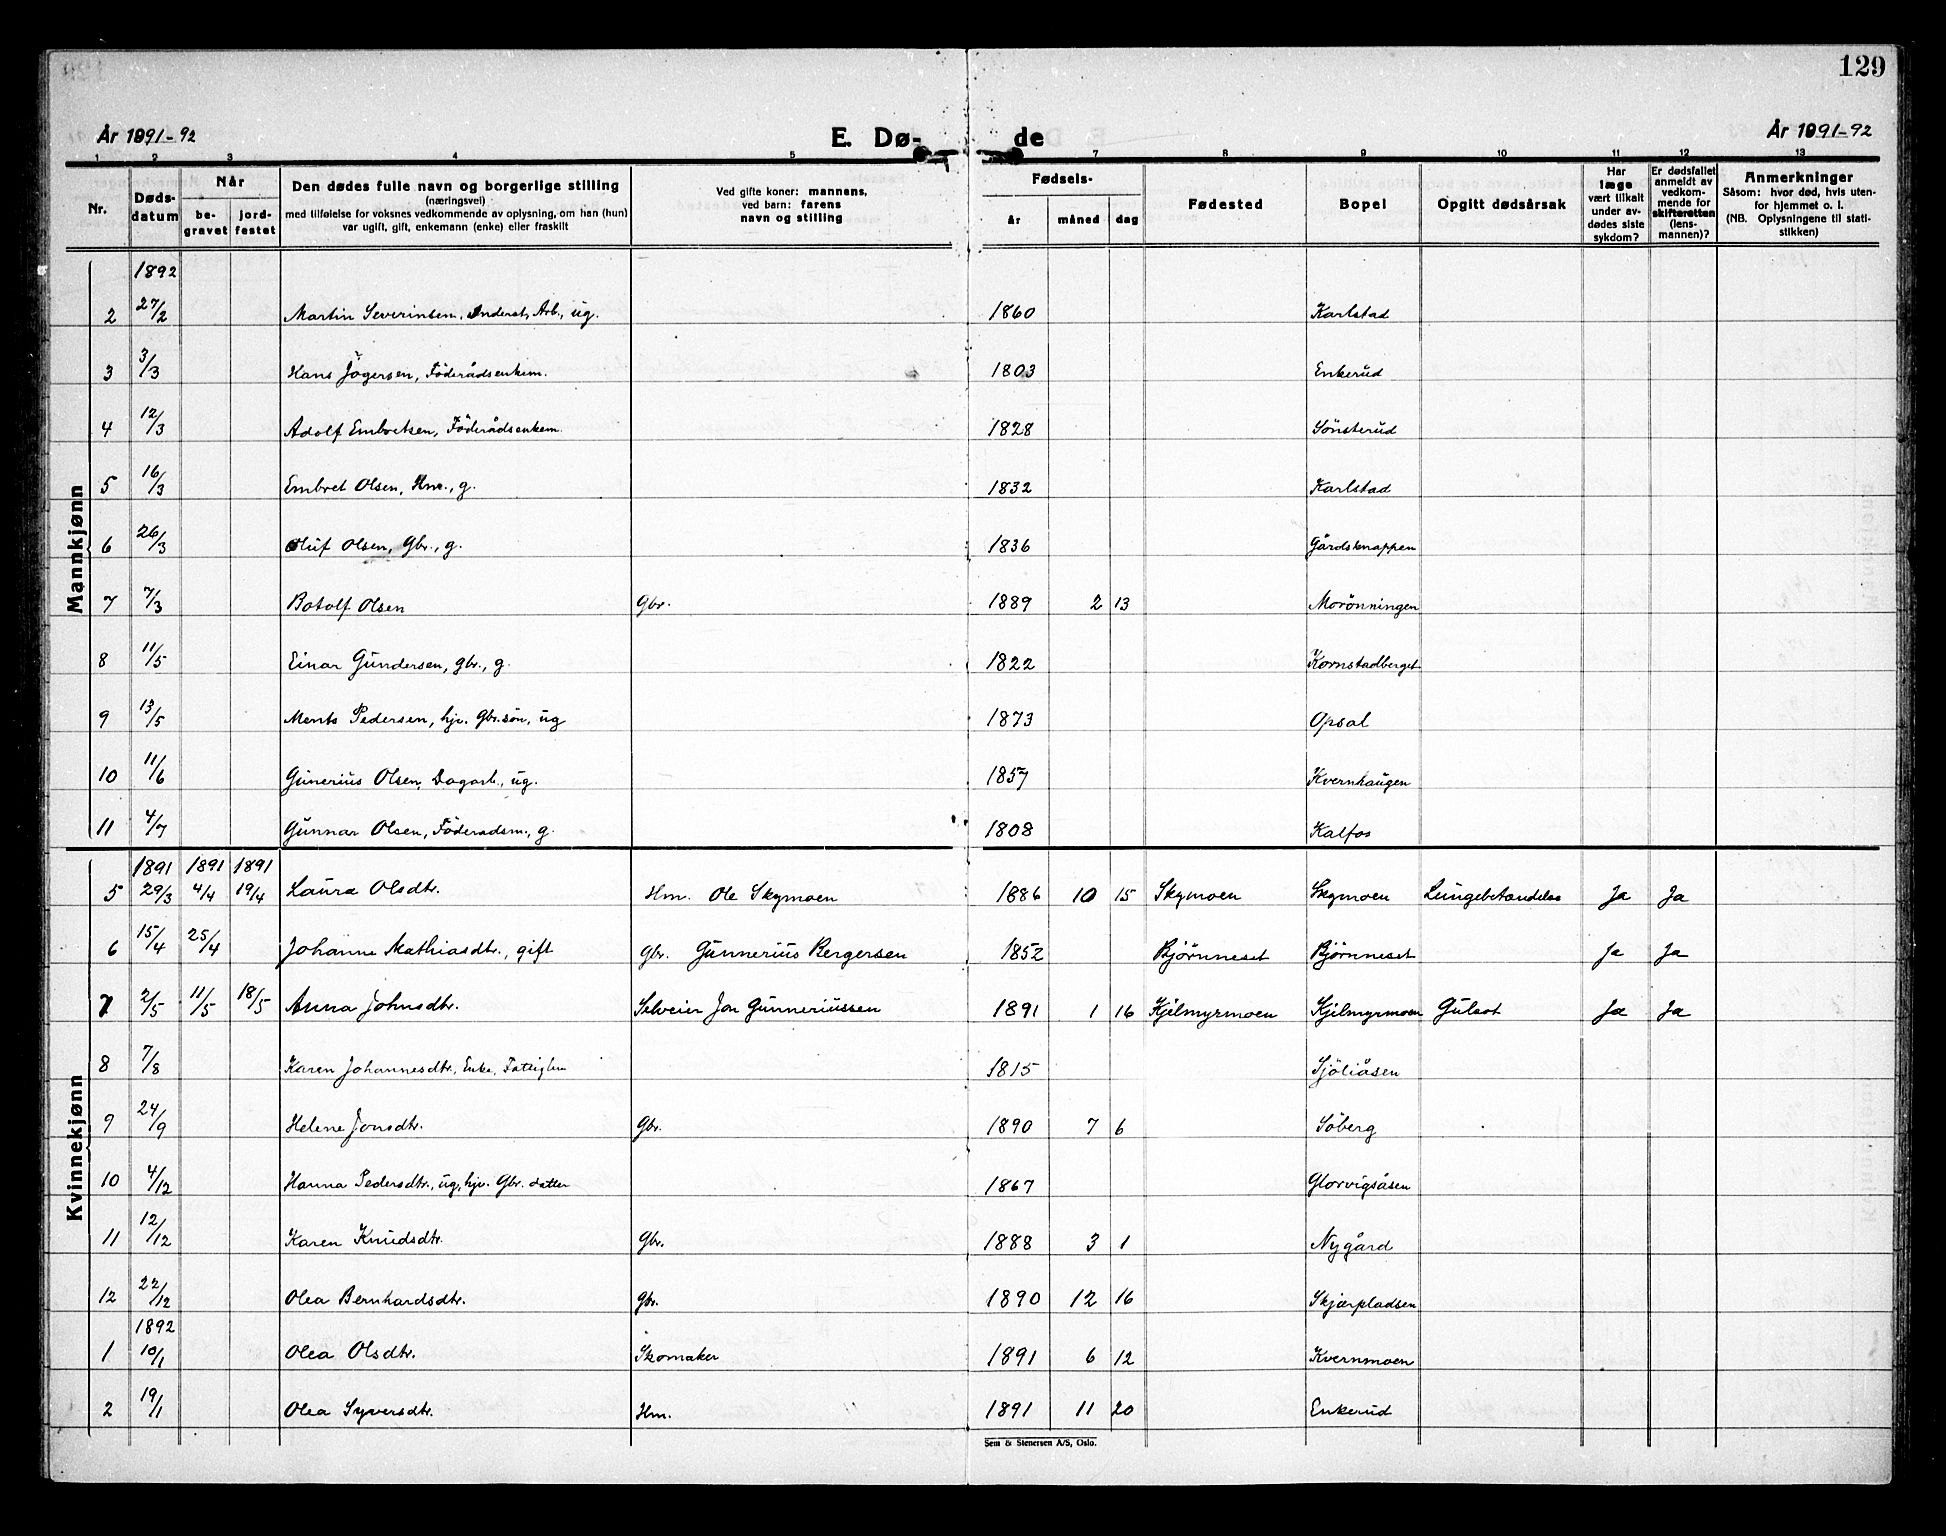 129
År 1891-92 E. Dø- de År 1891-92
1 2 3 4 5 7 8 9 10 11 12 13
Nr. Døds-datum Når be-gravet jord-festet Den dødes fulle navn og borgerlige stilling (næringsvei) med tilføielse for voksnes vedkommende av oplysning, om han (hun) var ugift, gift, enkemann (enke) eller fraskilt Ved gifte koner: mannens, ved barn: farens navn og stilling Fødsels- år måned dag Fødested Bopel Opgitt dødsårsak Har læge vært tilkalt under av-dødes siste sykdom? Er dødsfallet anmeldt av vedkom-mende for skifteretten (lens-mannen)? Anmerkninger Såsom: hvor død, hvis uten-for hjemmet o. l. (NB. Oplysningene til stati-stikken)
Mannkjønn
1892
2 27/2 Martin Severinsen, Arb., ug. 1860 Karlstad
3 3/3 Hans Jögersen, Föderådsenkem. 1803 Enkerud
4 12/3 Adolf Embretsen, Föderådsenkem. 1828 Sönsterud
5 16/3 Embret Olsen, Hm., g. 1832 Karlstad
6 26/3 Oluf Olsen, Gbr., g. 1836 Gårdsknappen
7 7/3 Botolf Olsen Gbr. 1889 2 13 Morönningen
8 11/5 Einar Gundersen, gbr., g. 1822 Kornstadberget
9 13/5 Ments Pedersen, hjv. Gbr.sön, ug 1873 Opsal
10 11/6 Gunerius Olsen, Dagarb., ug. 1857 Kvernhaugen
11 4/7 Gunnar Olsen, Föderadsm., g. 1808 Kalfos
Kvinnekjønn
1891 1891 1891
5 29/3 4/4 19/4 Laura Olsdtr. Hm. Ole Skymoen 1886 10 15 Skymoen Skymoen Lungebetændelse Ja Ja
6 15/4 25/4 Johanne Mathiasdtr., gift gbr. Gunnerius Bergersen 1852 Bjørnneset Bjørnneset Ja Ja
7 2/5 11/5 18/5 Anna Johnsdtr. Selveier Jon Gunneriussen 1891 1 16 Kjelmyrmoen Kjelmyrmoen Gulsot Ja Ja
8 7/8 Karen Johannesdtr., Enke, Fattiglem 1815 Sjöliåsen
9 24/9 Helene Jonsdtr. Gbr. 1890 7 6 Söberg
10 4/12 Hanna Pedersdtr., ug, hjv. Gbr. datter 1867 Glorvigsåsen
11 12/12 Karen Knudsdtr. Gbr. 1888 3 1 Nygård
12 22/12 Olea Bernhardsdtr. Gbr. 1890 12 16 Skjærpladsen
1892
1 10/1 Olea Olsdtr. Skomaker 1891 6 12 Kvernmoen
2 19/1 Olea Syversdtr. Hm. 1891 11 20 Enkerud
Sem & Stenersen A/S, Oslo.